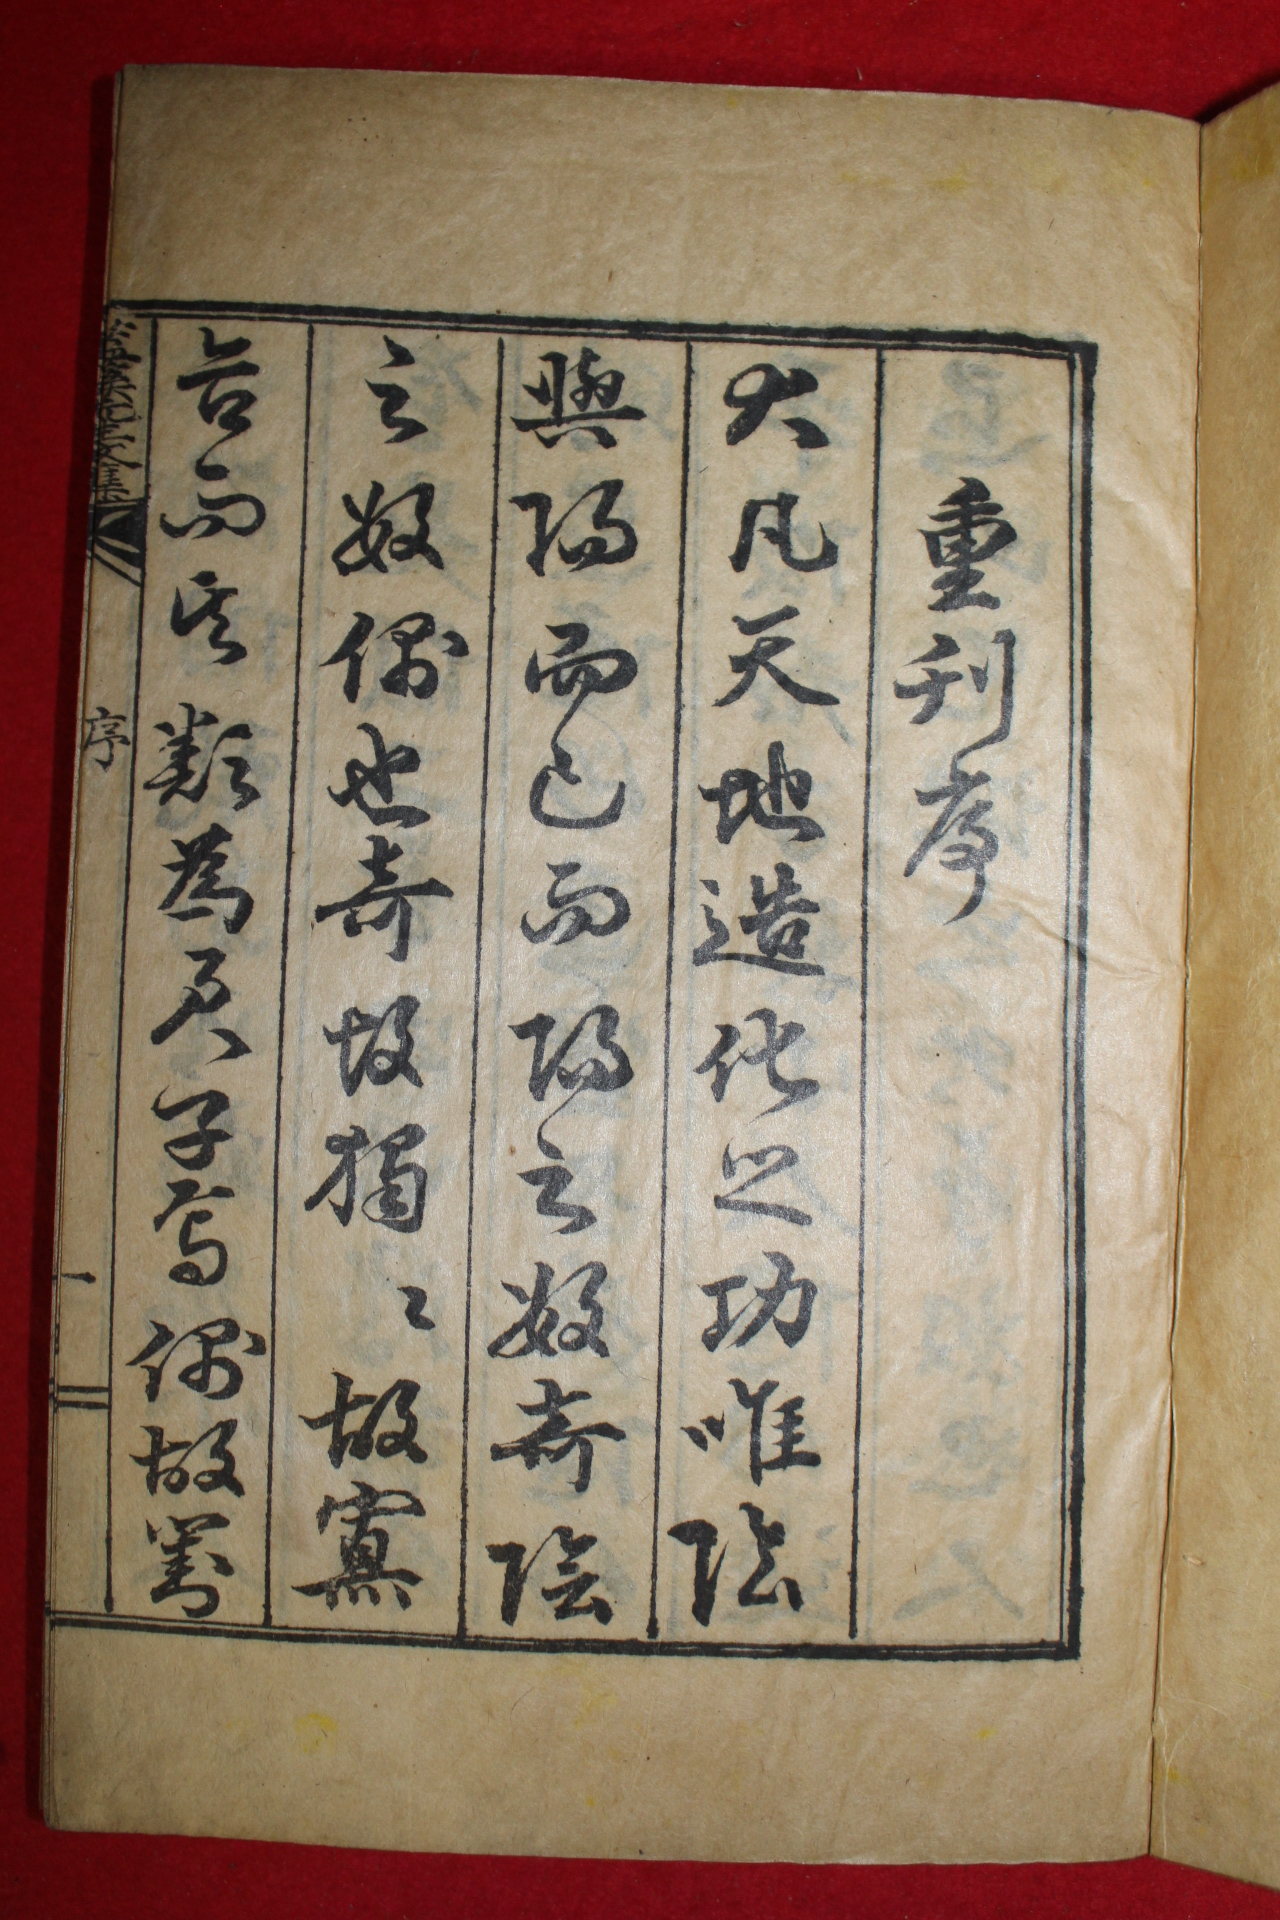 重刊序
大凡天地造化之功唯陰
與陽而已而陽之數奇陰
之數偶也奇故獨〻故寡
合而其類為君子焉偶故對
文集
序
一